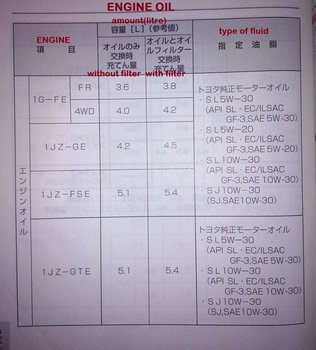 ENGINE OIL
amount(litre)
容量 [L] (参考値)
ENGINE
項 目
オイルのみ
交換時
充てん量
without filter
オイルとオ
イルフィルター
交換時
充てん量
with filter
type of fluid
指 定 油 脂
エンジンオイル
1G-FE
FR 3.6 3.8
4WD 4.0 4.2
トヨタ純正モーターオイル
・SL5W-30
(API SL・EC/ILSAC
GF-3,SAE 5W-30)
1JZ-GE 4.2 4.5
・SL5W-20
(API SL・EC/ILSAC
GF-3,SAE 5W-20)
・SL10W-30
(API SL・EC/ILSAC
GF-3,SAE 10W-30)
1JZ-FSE 5.1 5.4
・SJ10W-30
(SJ,SAE10W-30)
1JZ-GTE 5.1 5.4
トヨタ純正モーターオイル
・SL5W-30
(API SL・EC/ILSAC
GF-3,SAE 5W-30)
・SL10W-30
(API SL・EC/ILSAC
GF-3,SAE 10W-30)
・SJ10W-30
(SJ,SAE10W-30)